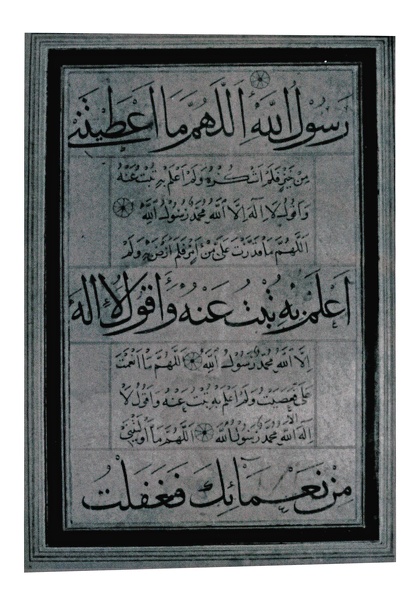 رَسُولُ اللهِ اَللّٰهُمَّ مَا اَعْطَيْتَنِي
مِنْ خَيْرٍ فَلَمْ اَشْكُرْهُ وَلَمْ اَعْلَمْ بِهِ تُبْتُ عَنْهُ
وَاَقُولُ لَا اِلٰهَ اِلَّا اللهُ مُحَمَّدٌ رَسُولُ اللهِ
اَللّٰهُمَّ مَا قَدَّرْتَ عَلَيَّ مِنْ اَمْرٍ فَلَمْ اَرْضَهُ وَلَمْ
اَعْلَمْ بِهِ تُبْتُ عَنْهُ وَاَقُولُ لَا اِلٰهَ
اِلَّا اللهُ مُحَمَّدٌ رَسُولُ اللهِ اَللّٰهُمَّ مَا اَنْعَمْتَ
عَلَيَّ فَعَصَيْتُ وَلَمْ اَعْلَمْ بِهِ تُبْتُ عَنْهُ وَاَقُولُ لَا
اِلٰهَ اِلَّا اللهُ مُحَمَّدٌ رَسُولُ اللهِ اَللّٰهُمَّ مَا اَوْلَيْتَنِي
مِنْ نَعْمَائِكَ فَغَفَلْتُ